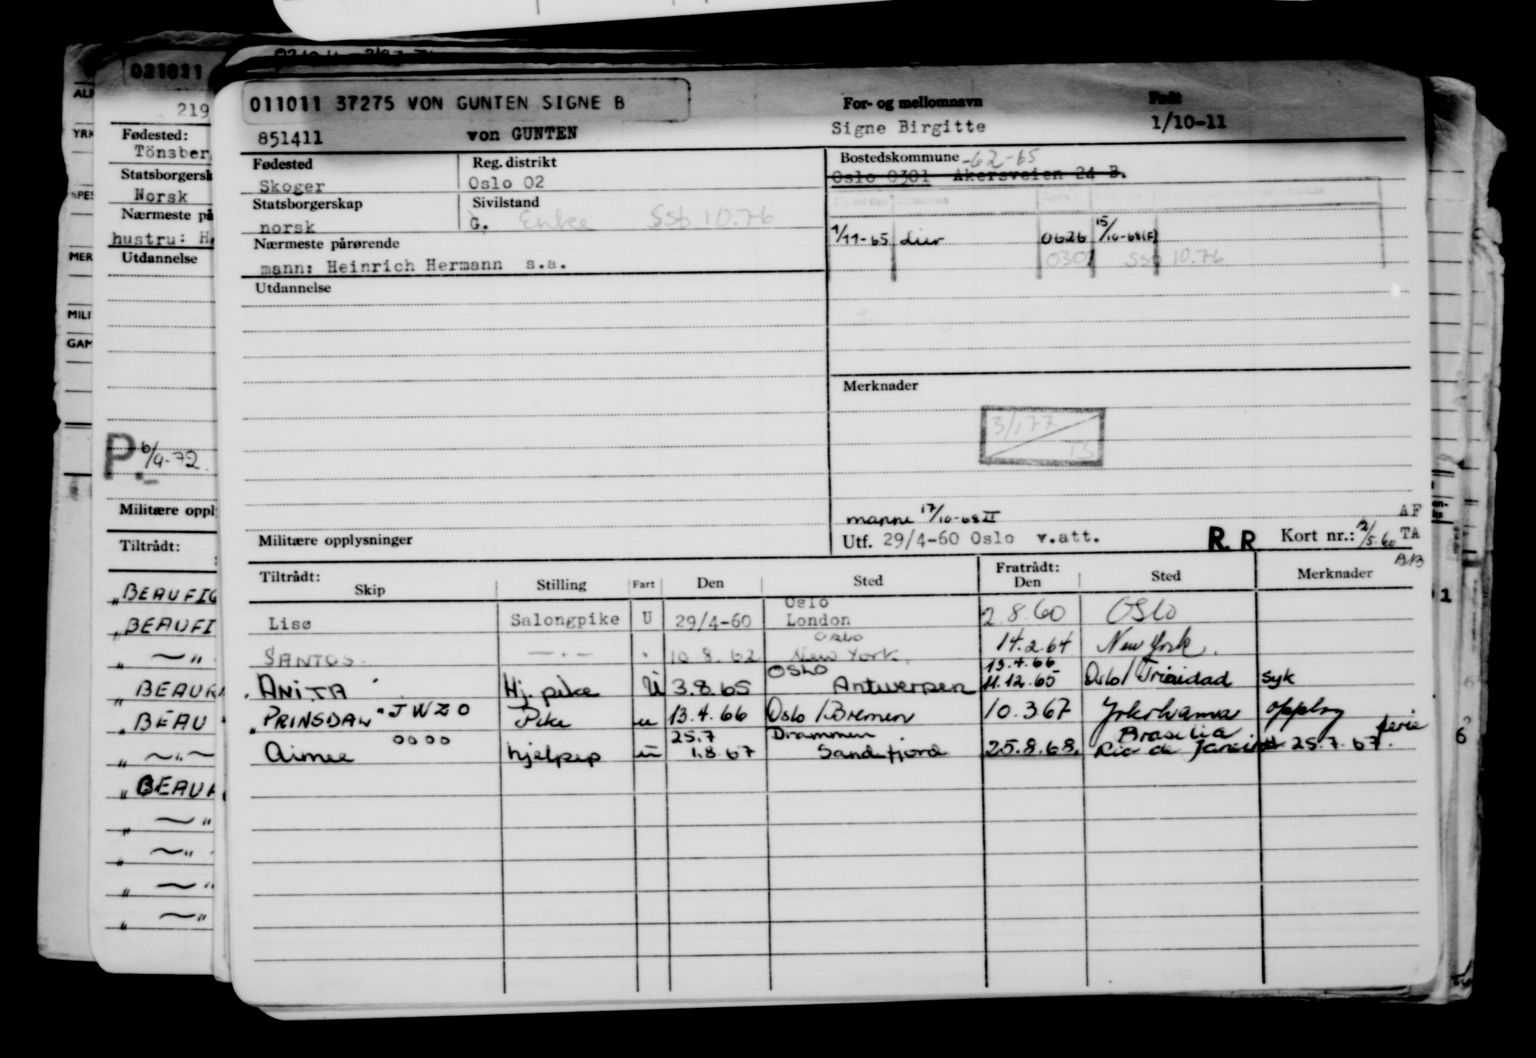 021011
219
Fødested:
Tönsber
Statsborgersk
Norsk
Nærmeste på
hustru: H
Utdannelse
P. 6/9-72.
Militære oppl
Tiltrådt:
"BEAUFIG
"BEAUFI
" —"—
"BEAUR
"BEAU
" —"—
"BEAUR
" —"
" —"
" —"
" —"
YRK
SPES
MER
MILI
GAM
011011 37275 VON GUNTEN SIGNE B
For- og mellomnavn
Født
851411 von GUNTEN
Signe Birgitte
1/10-11
Fødested
Reg. distrikt
Skoger
Oslo 02
Bostedskommune -62-65
Oslo 0301 Akersveien 24 B.
Statsborgerskap
Sivilstand
norsk
G. Enke SSB 10.76
1/11-65 Lier 0626 15/10-68(F)
0301 SSB 10.76
Nærmeste pårørende
mann: Heinrich Hermann s.a.
Utdannelse
Merknader
3/1 77
TS
manne 17/10-68 II
AF
Militære opplysninger
Utf. 29/4-60 Oslo v.att.
R. R
Kort nr.: 12/5.60 TA
BB
Tiltrådt:
Skip Stilling Fart Den Sted
Fratrådt:
Den Sted Merknader
Lisø Salongpike U 29/4-60 Oslo London 2.8.60 OSLO
SANTOS —.— " 10.8.62 Oslo New York. 14.2.64 New York.
ANITA Hj. pike U 3.8.65 OSLO Antwerpen 13.4.66 11.12.65 Oslo/Trinidad syk
"PRINSDAL" JWZO Pike u 13.4.66 Oslo/Bremen 10.3.67 Yokohama opplag
Aimee oooo hjelpep u 25.7 1.8.67 Drammen Sandefjord 25.8.68. Brasilia Rio de Janeiro 25.7.67. ferie
1
6